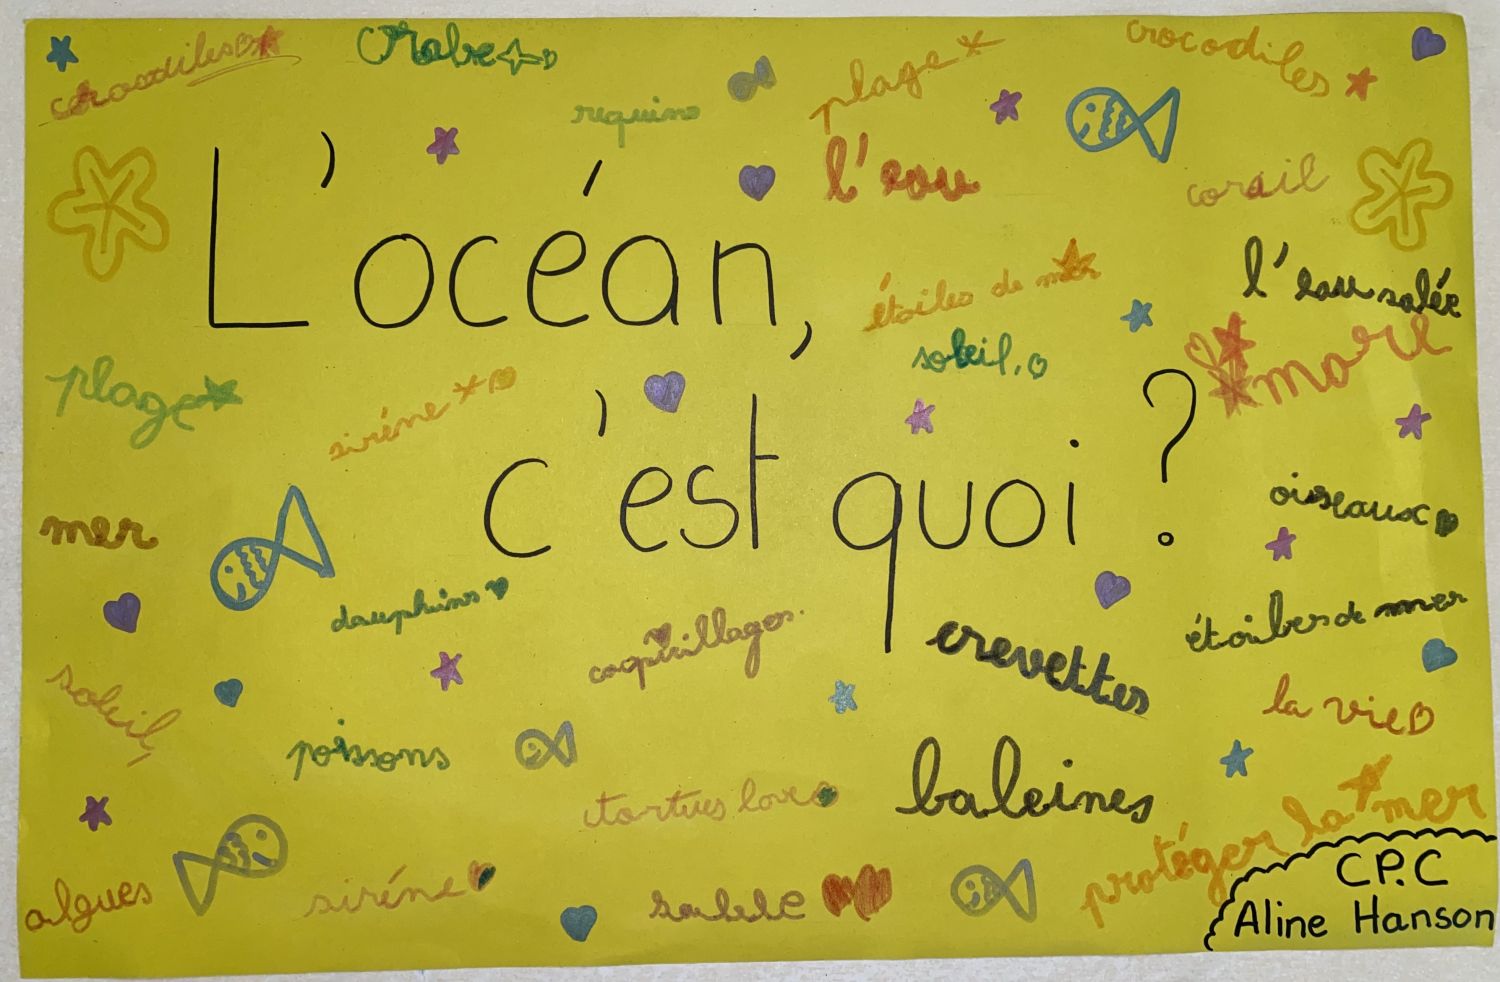 crocodiles
crabe
requins
plage
crocodiles
l'eau
corail
L'océan,
étoiles de mer
l'eau salée
soleil
plage
siréne
c'est quoi ?
mer
oiseaux
dauphins
coquillages.
crevettes
étoiles de mer
soleil
la vie
poissons
tortues love
baleines
protéger la mer
algues
siréne
CP.C
Aline Hanson